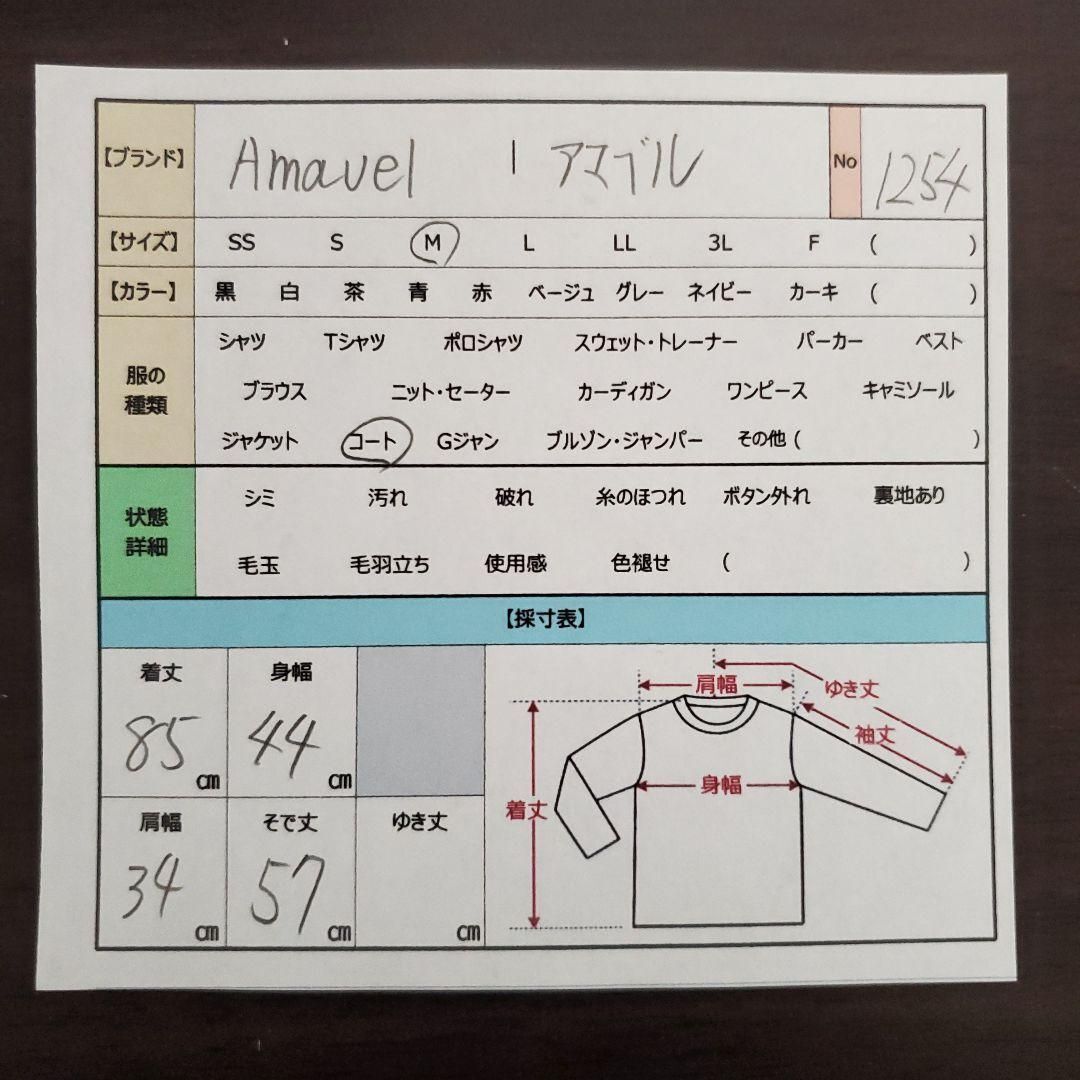 【ブランド】 Amavel | アマブル No 1254
【サイズ】 SS S M L LL 3L F ( )
【カラー】 黒 白 茶 青 赤 ベージュ グレー ネイビー カーキ ( )
服の種類
シャツ Tシャツ ポロシャツ スウェット・トレーナー パーカー ベスト
ブラウス ニット・セーター カーディガン ワンピース キャミソール
ジャケット コート Gジャン ブルゾン・ジャンパー その他 ( )
状態詳細
シミ 汚れ 破れ 糸のほつれ ボタン外れ 裏地あり
毛玉 毛羽立ち 使用感 色褪せ ( )
【採寸表】
着丈 身幅
85 cm 44 cm
肩幅 そで丈 ゆき丈
34 cm 57 cm cm
肩幅 ゆき丈
袖丈
身幅
着丈